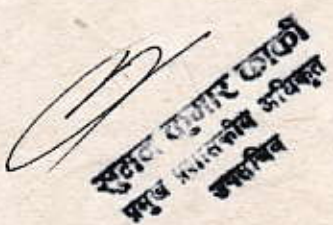 कुमार कार्की
प्रमुख प्रशासकीय अधिकृत
उपसचिव